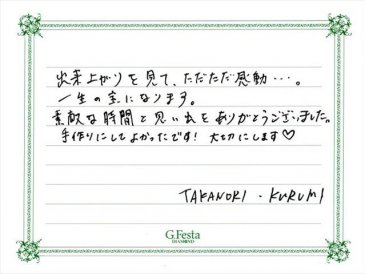 出来上がりを見て、ただただ感動…。
一生の宝になります。
素敵な時間と思い出をありがとうございました。
手作りにしてよかったです！大切にします♡
TAKANORI・KURUMI
G.Festa
DIAMOND